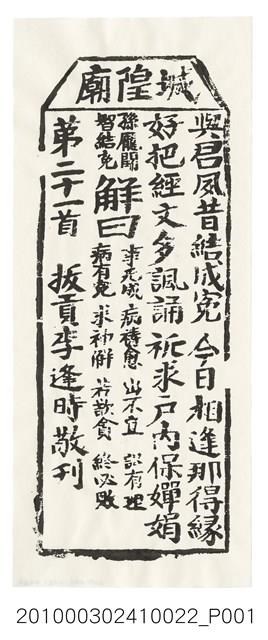 城隍廟
與君夙昔結成冤 今日相逢那得緣
好把經文多諷誦 祈求戶內保嬋娟
孫龐鬪
智結冤
解曰
事无成 病禱愈 出不宜 訟有理
病有冤 求神解 若欲貪 終必敗
第二十一首 拔貢李逢時敬刊
201000302410022_P001